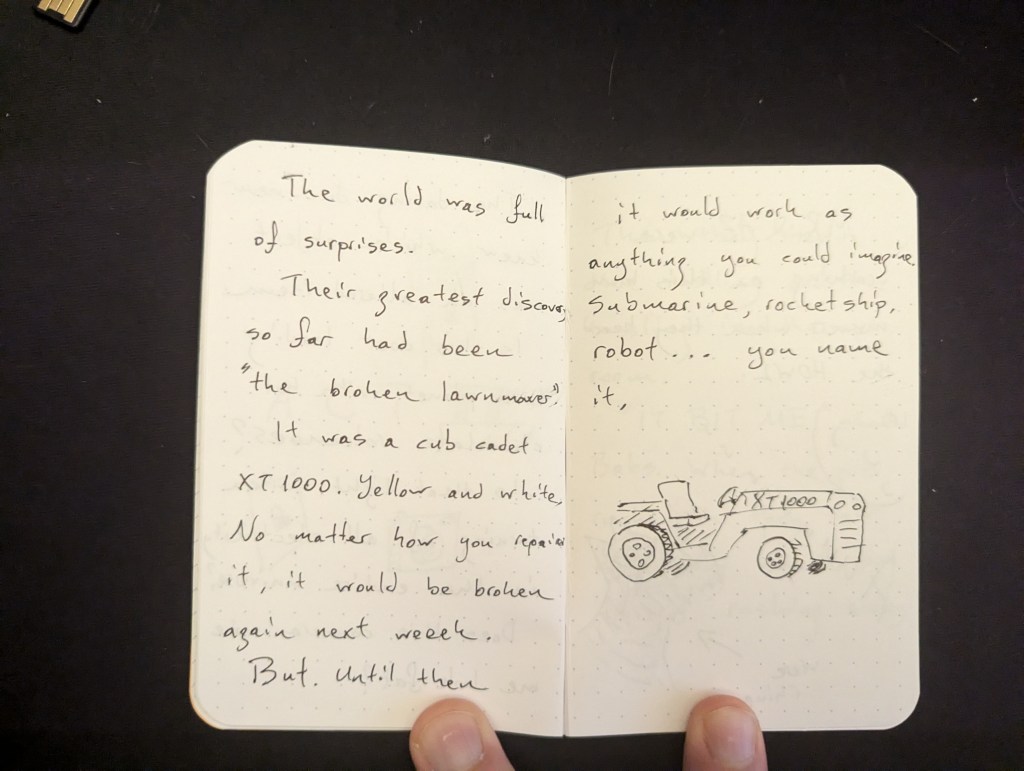 The world was full
of surprises.
Their greatest discovery
so far had been
"the broken lawnmower".
It was a cub cadet
XT1000. Yellow and white,
No matter how you repaired
it, it would be broken
again next weeek.
But. Until then
it would work as
anything you could imagine.
Submarine, rocket ship,
robot... you name
it,
XT1000